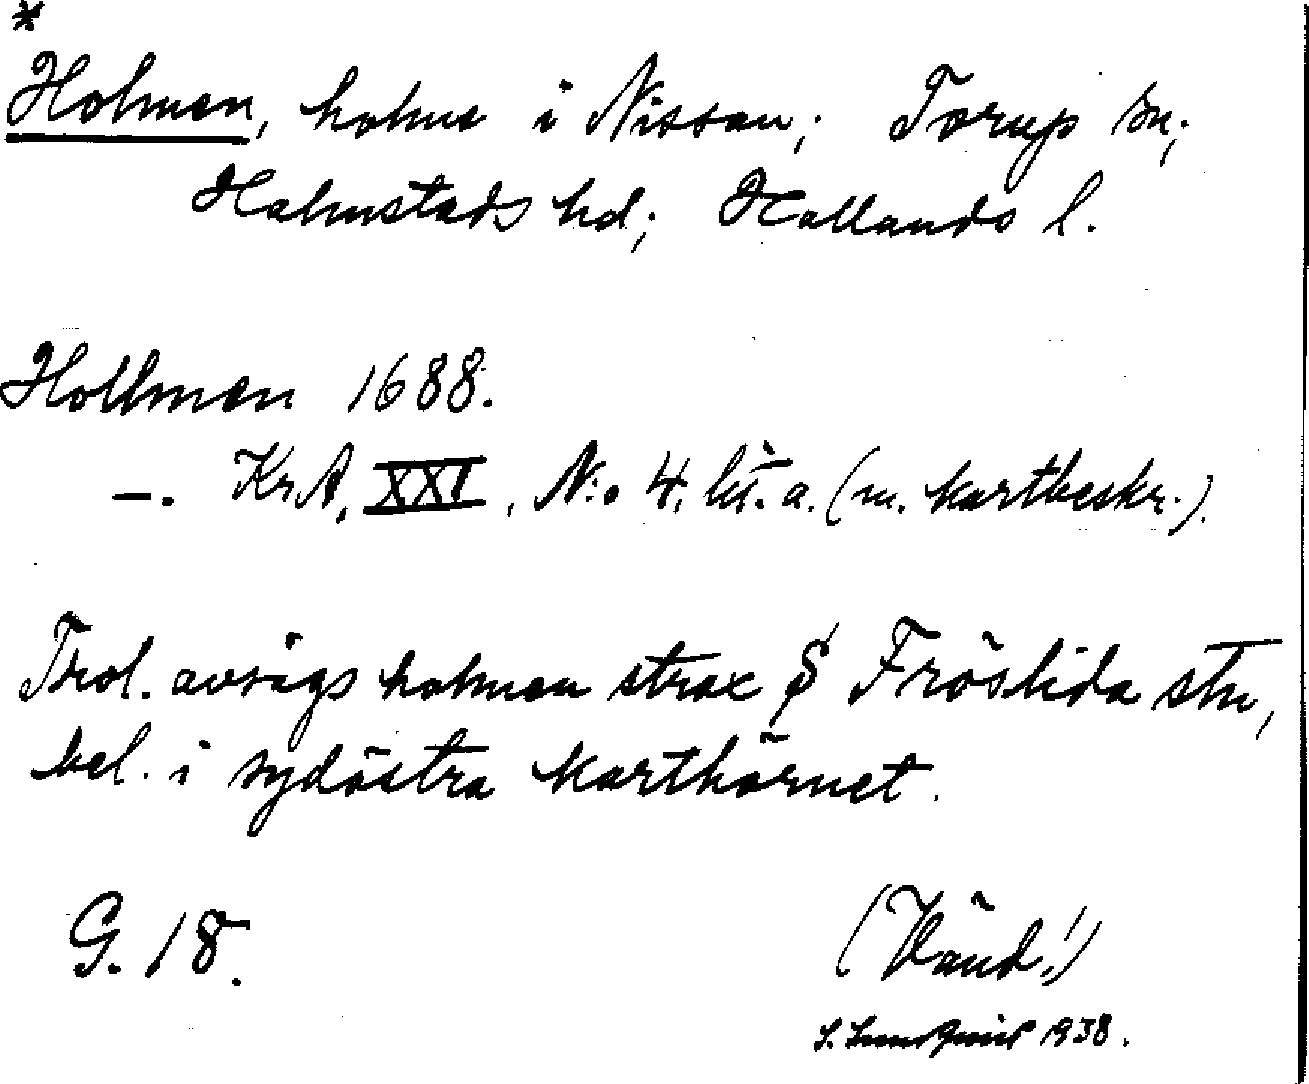 *
Holmen, holme i Nissan; Torup sn;
Halmstads hd; Hallands l.
Hollmen 1688.
—. KrA, XXI, N:o 4. lit. a. (m. kartbeskr.).
Trol. avsågs holmen strax S Fröslida stn,
bel. i sydöstra karthörnet.
G. 18.
(Vänd!)
S. Lundqvist 1938.